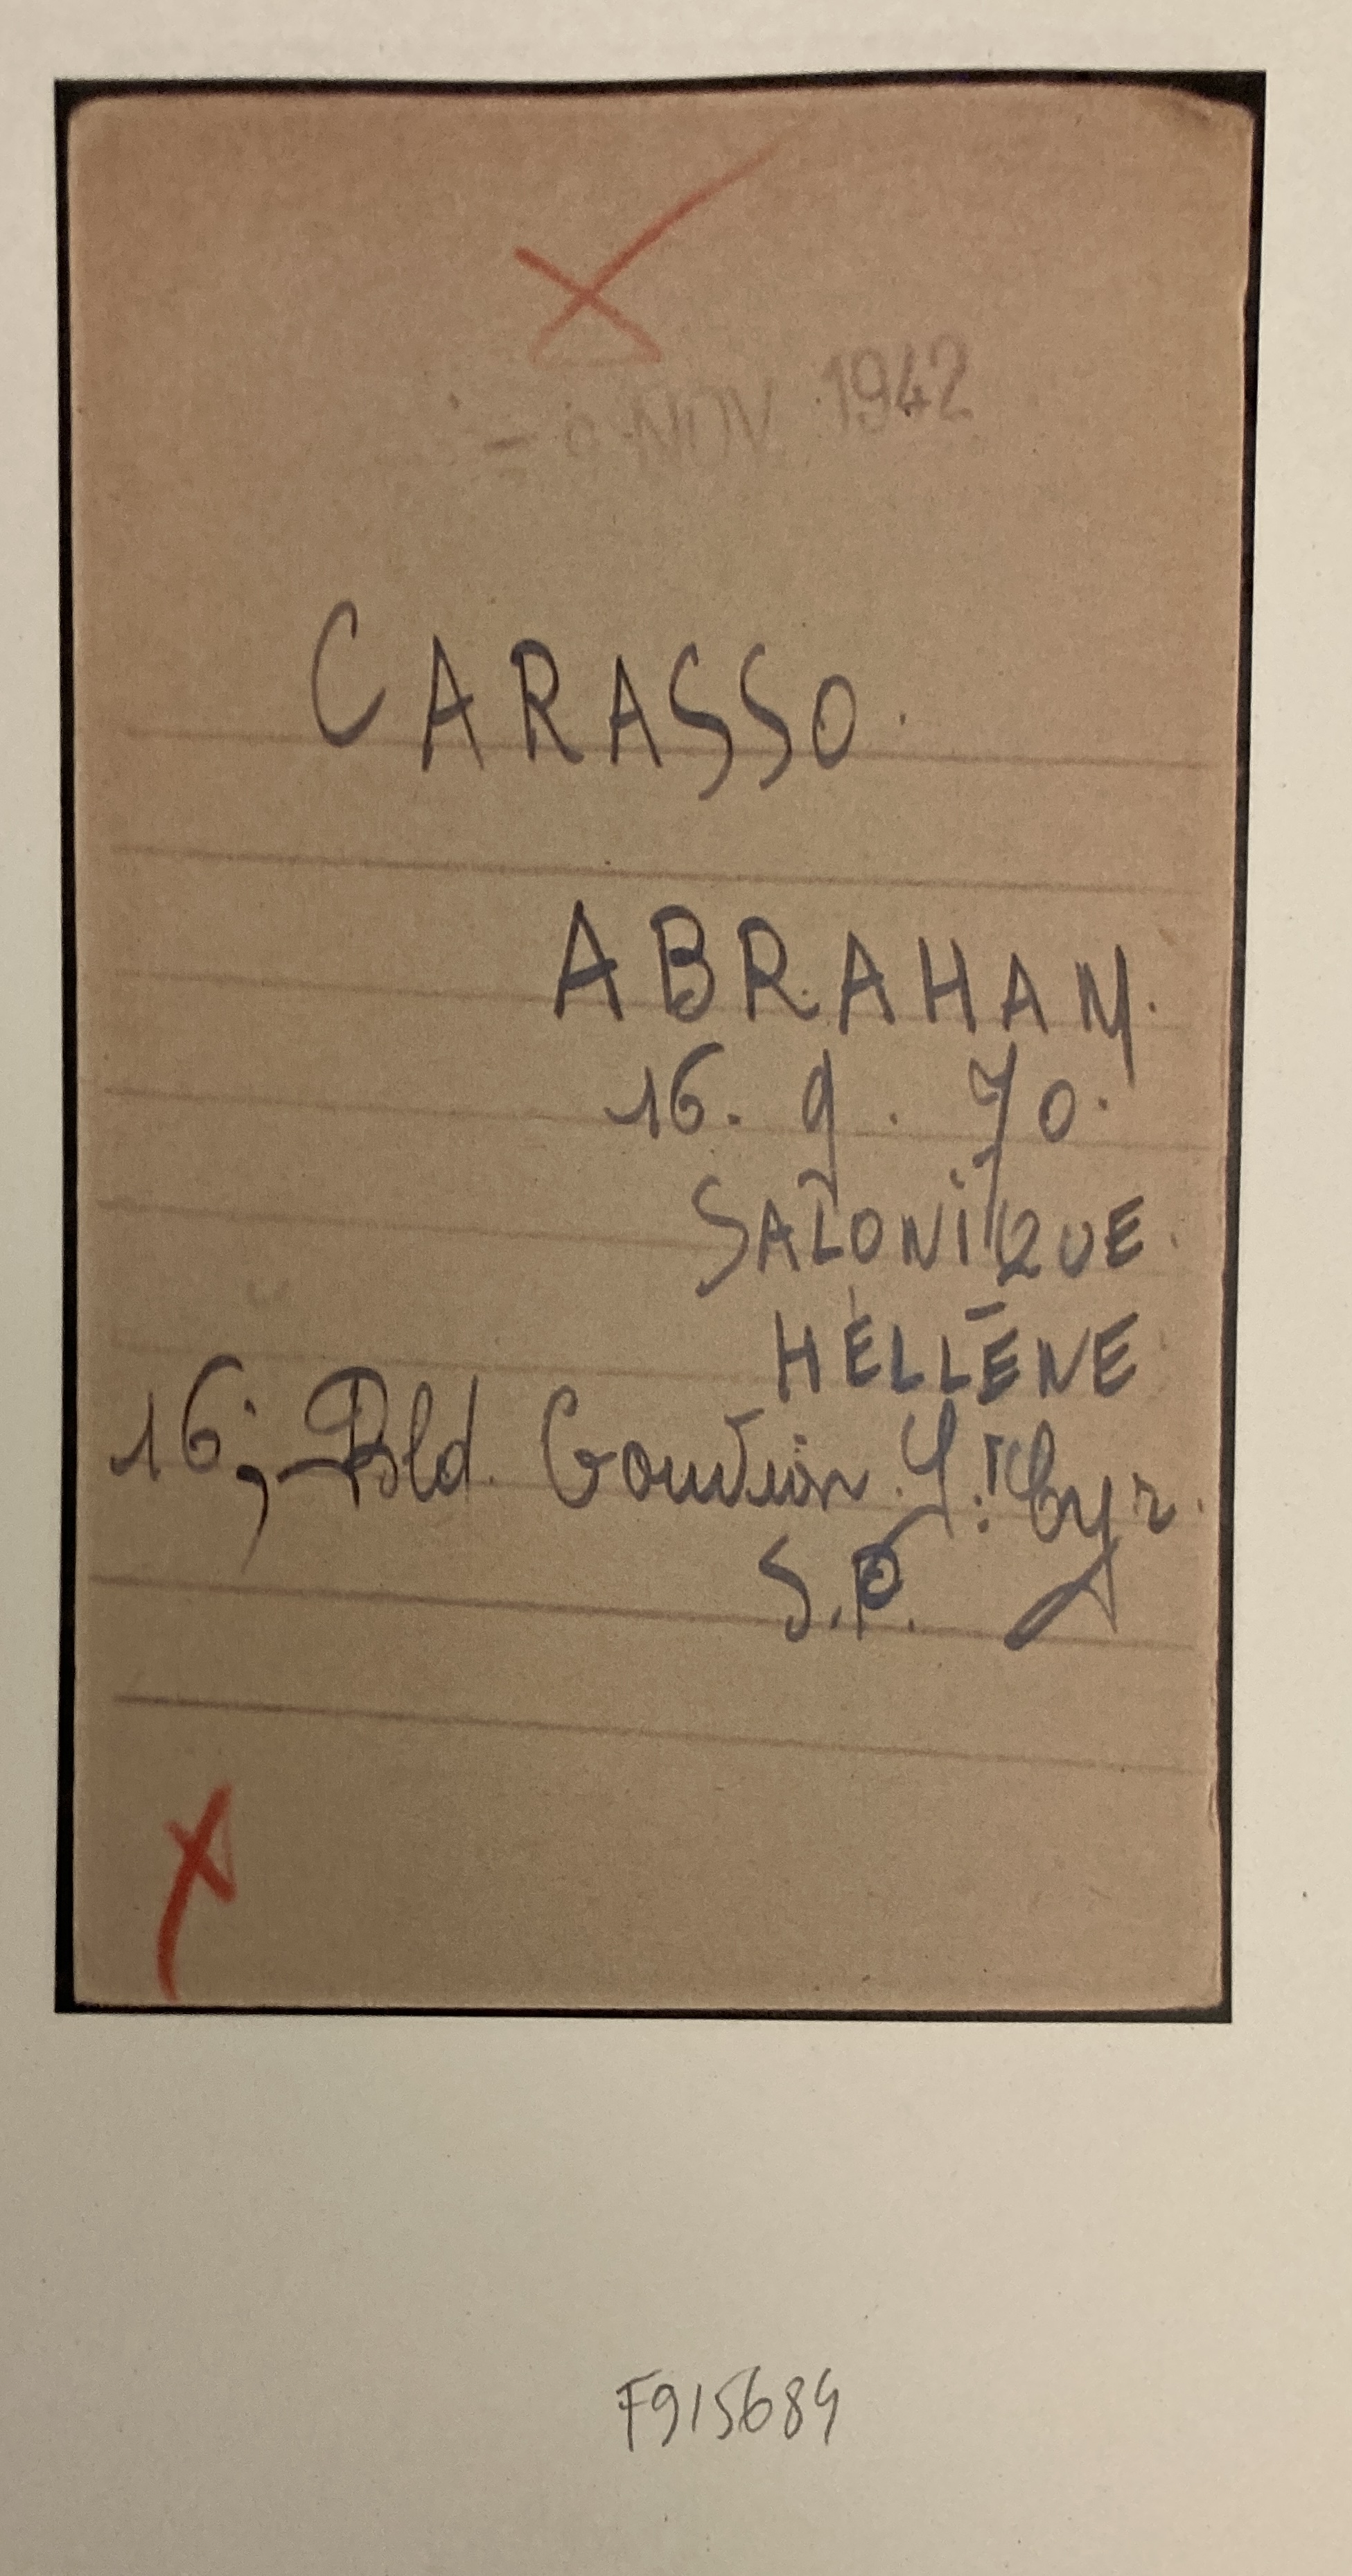 - 9 NOV. 1942
CARASSO.
ABRAHAM.
16. 9. 70.
SALONIQUE.
HÉLLÈNE
16, Bld. Gouvion St. Cyr.
S.P.
F915689